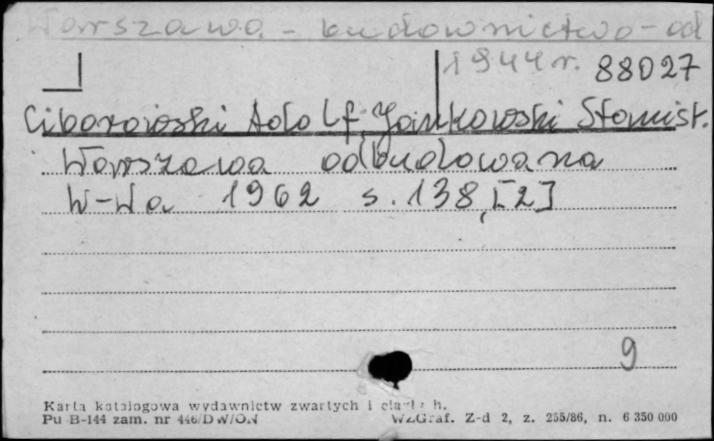 Warszawa - budownictwo - od
1944 r. 88027
Ciborowski Adolf, Jankowski Stanisł.
Warszawa odbudowana
W-wa 1962 s. 138, [2]
9
Karta katalogowa wydawnictw zwartych i h.
Pu B-144 zam. nr 446/DW/ON WZGraf. Z-d 2, z. 255/86, n. 6 350 000